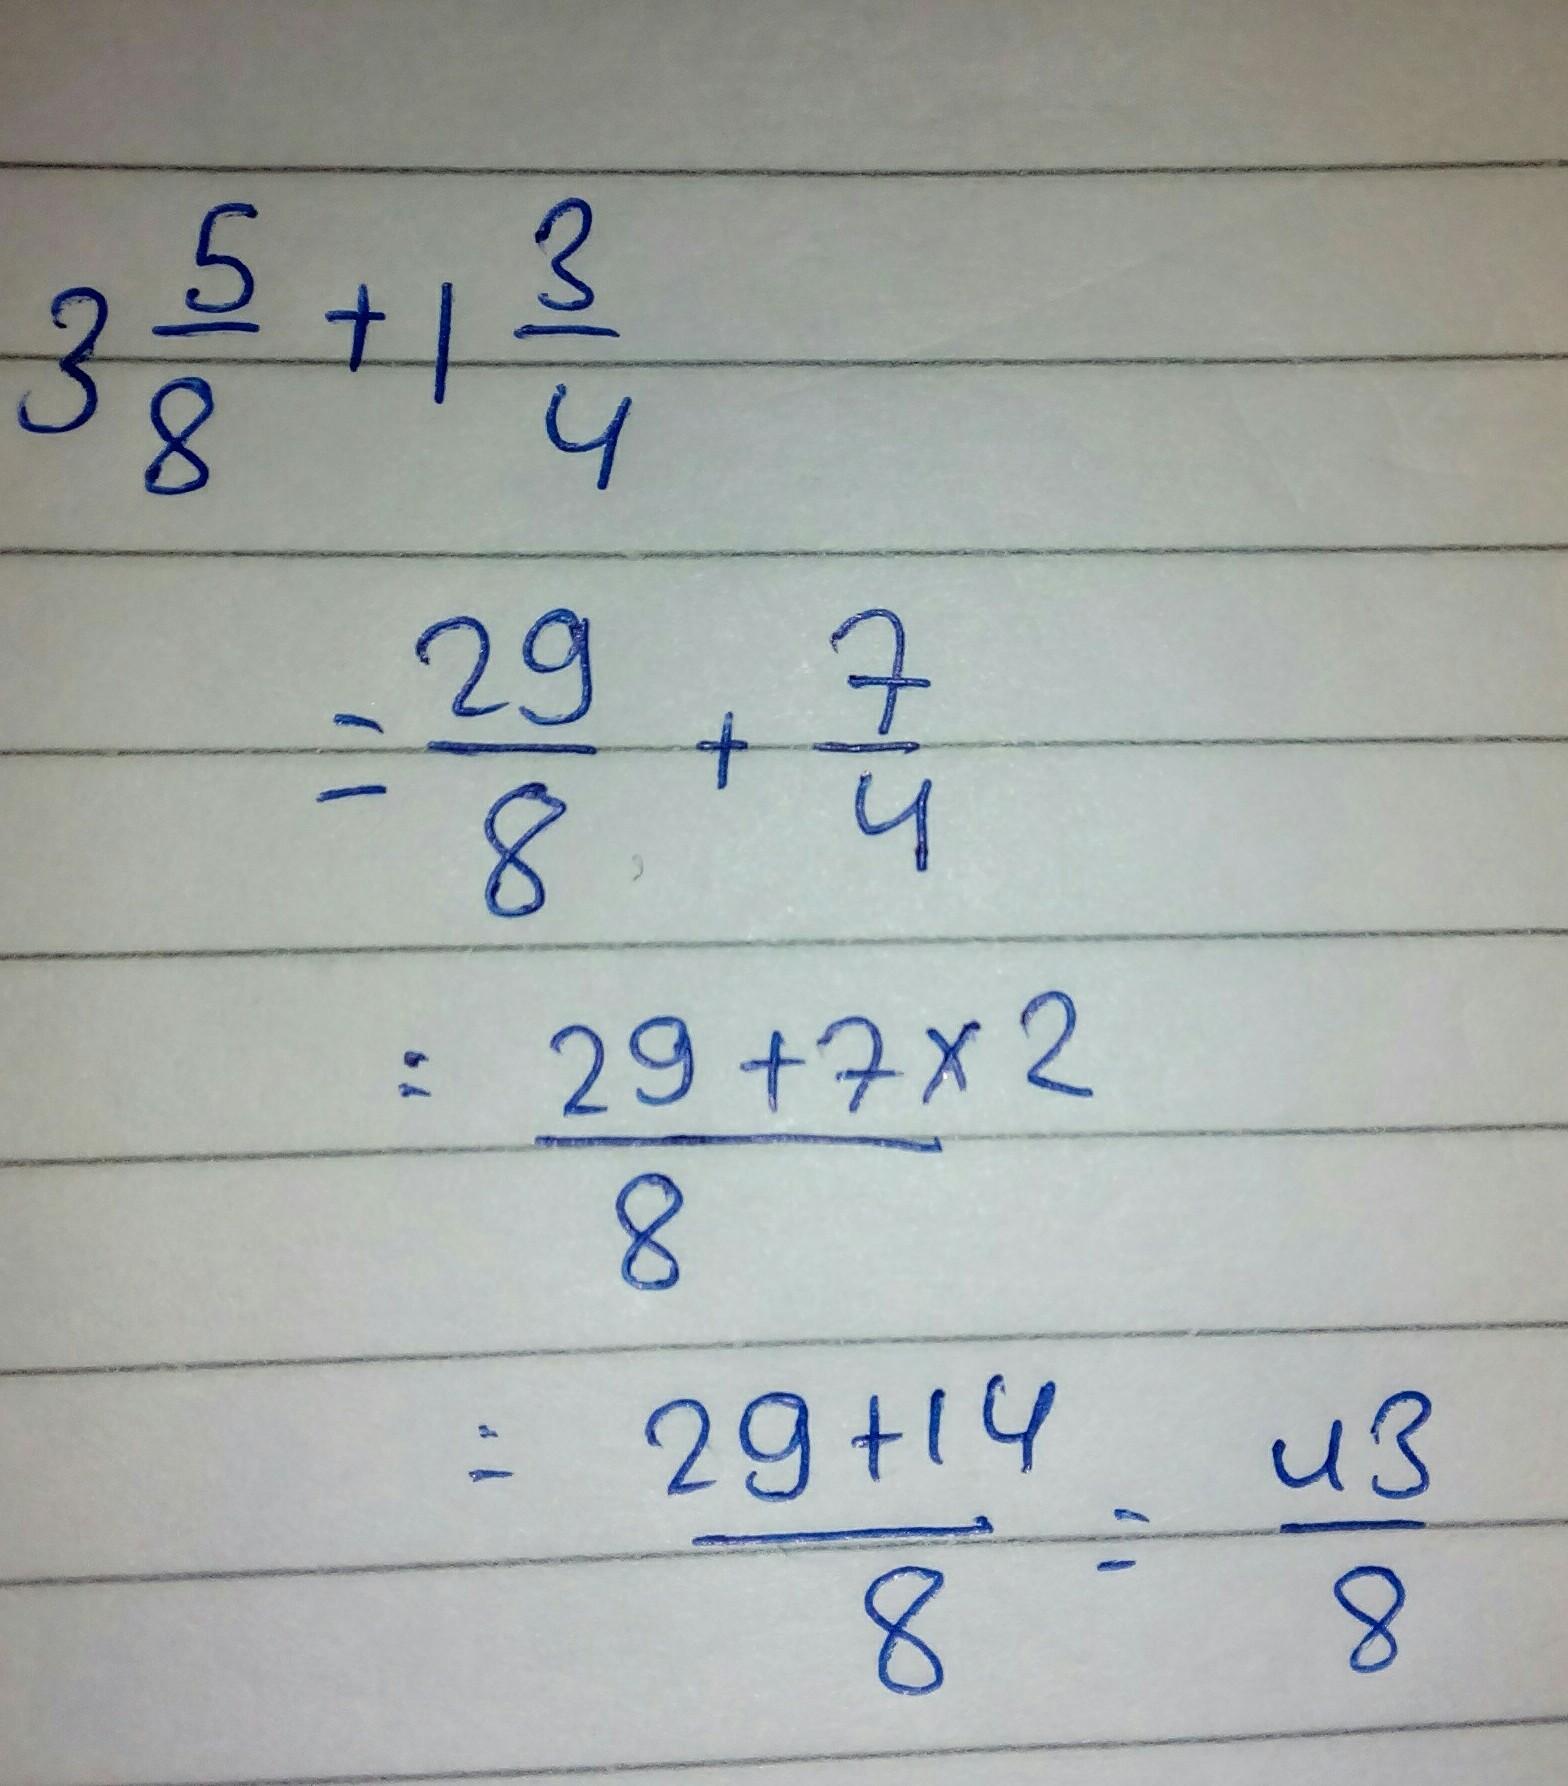 3 5/8 + 1 3/4
= 29/8 + 7/4
= 29+7×2/8
= 29+14/8 = 43/8